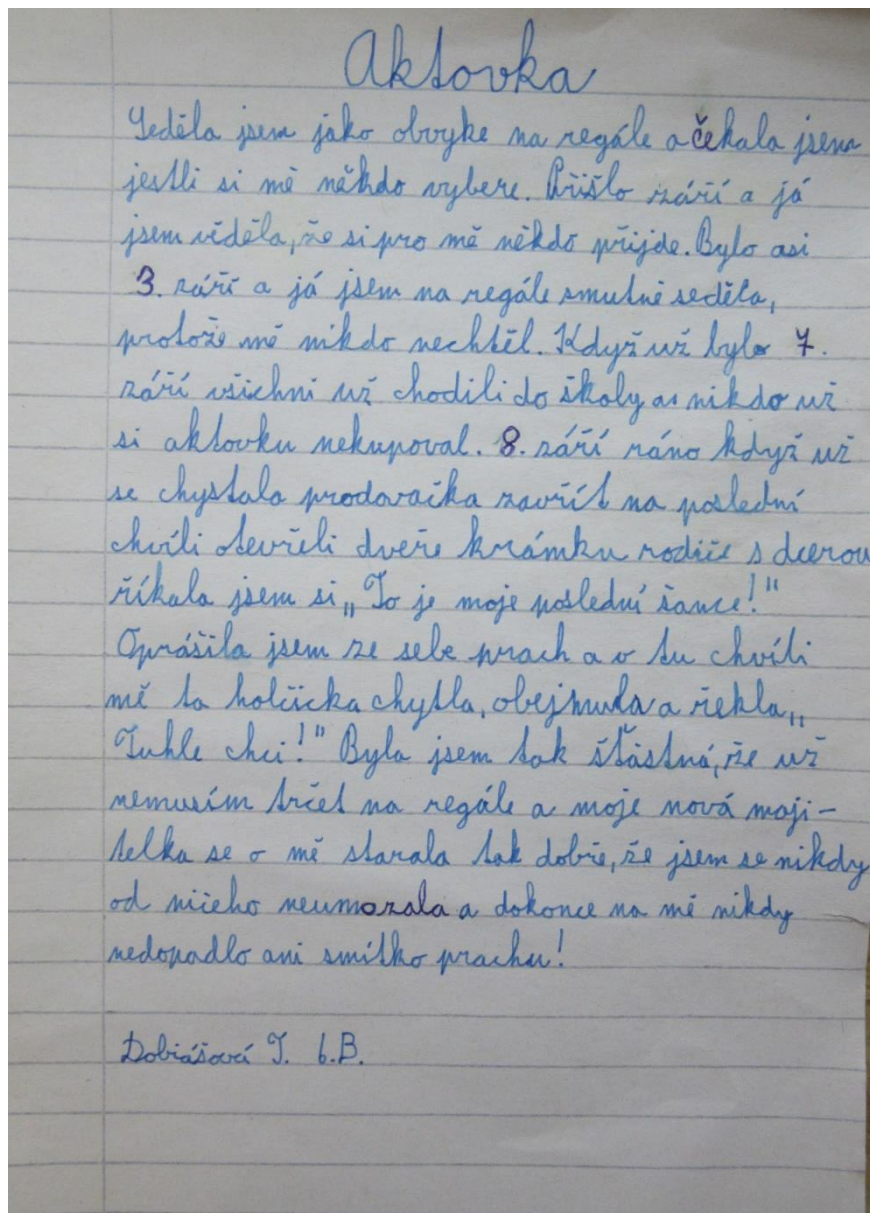 Aktovka
Seděla jsem jako obvyke na regále a čekala jsem
jestli si mě někdo vybere. Přišlo září a já
jsem věděla, že si pro mě někdo přijde. Bylo asi
3. září a já jsem na regále smutně seděla,
protože mě nikdo nechtěl. Když už bylo 7.
září všichni už chodili do školy a nikdo už
si aktovku nekupoval. 8. září ráno když už
se chystala prodavačka zavřít na poslední
chvíli otevřeli dveře krámku rodiče s dcerou
říkala jsem si „To je moje poslední šance!"
Oprášila jsem ze sebe prach a v tu chvíli
mě ta holčička chytla, obejmula a řekla „
Tuhle chci!" Byla jsem tak šťastná, že už
nemusím trčet na regále a moje nová maji-
telka se o mě starala tak dobře, že jsem se nikdy
od ničeho neumazala a dokonce na mě nikdy
nedopadlo ani smítko prachu!
Dobiášová T. 6.B.